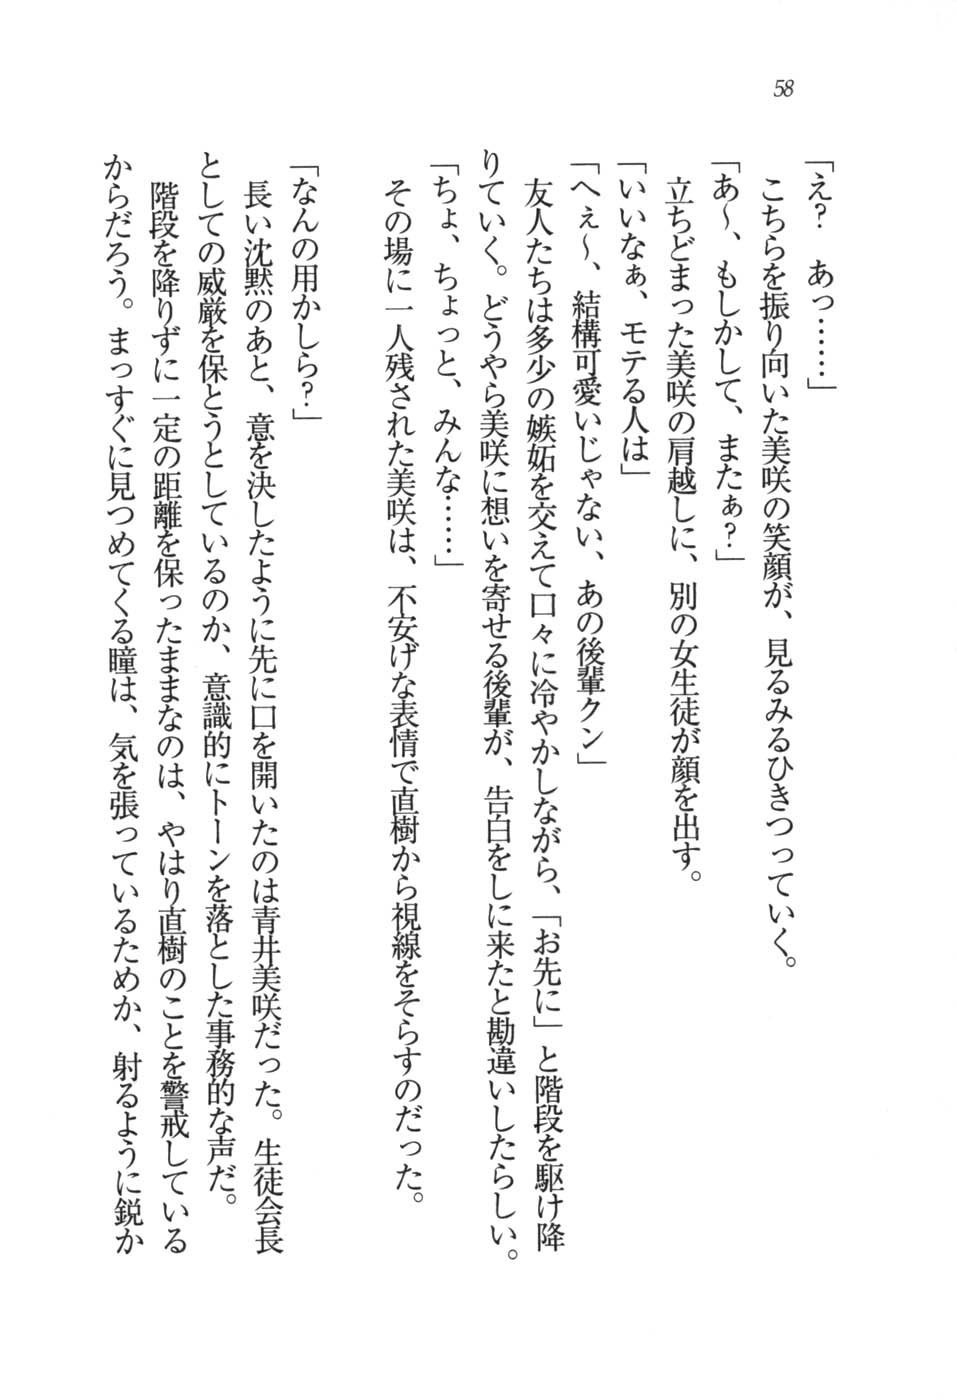 58
「え？　あっ……」
　こちらを振り向いた美咲の笑顔が、見るみるひきつっていく。
「あ～、もしかして、またぁ？」
　立ちどまった美咲の肩越しに、別の女生徒が顔を出す。
「いいなぁ、モテる人は」
「へぇ～、結構可愛いじゃない、あの後輩クン」
　友人たちは多少の嫉妬を交えて口々に冷やかしながら、「お先に」と階段を駆け降
りていく。どうやら美咲に想いを寄せる後輩が、告白をしに来たと勘違いしたらしい。
「ちょ、ちょっと、みんな……」
　その場に一人残された美咲は、不安げな表情で直樹から視線をそらすのだった。
「なんの用かしら？」
　長い沈黙のあと、意を決したように先に口を開いたのは青井美咲だった。生徒会長
としての威厳を保とうとしているのか、意識的にトーンを落とした事務的な声だ。
　階段を降りずに一定の距離を保ったままなのは、やはり直樹のことを警戒している
からだろう。まっすぐに見つめてくる瞳は、気を張っているためか、射るように鋭か